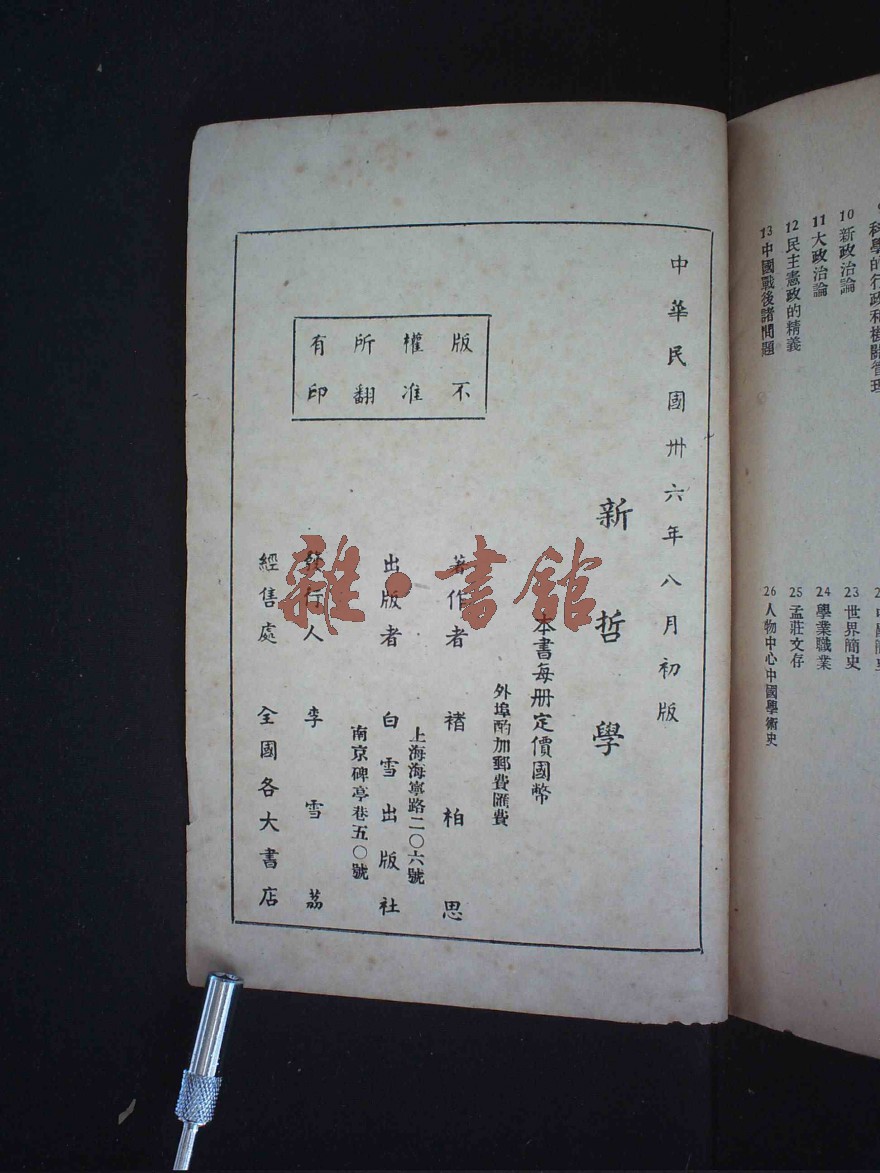 中華民國卅六年八月初版
新哲學
本書每册定價國幣
外埠酌加郵費匯費
著作者 褚柏思
上海海寧路二〇六號
出版者 白雪出版社
南京碑亭巷五〇號
發行人 李雪荔
經售處 全國各大書店
版權所有
不准翻印
雜·書館
科學的行政和機關管理
10 新政治論
11 大政治論
12 民主憲政的精義
13 中國戰後諸問題
23 世界簡史
24 學業職業
25 孟莊文存
26 人物中心中國學術史